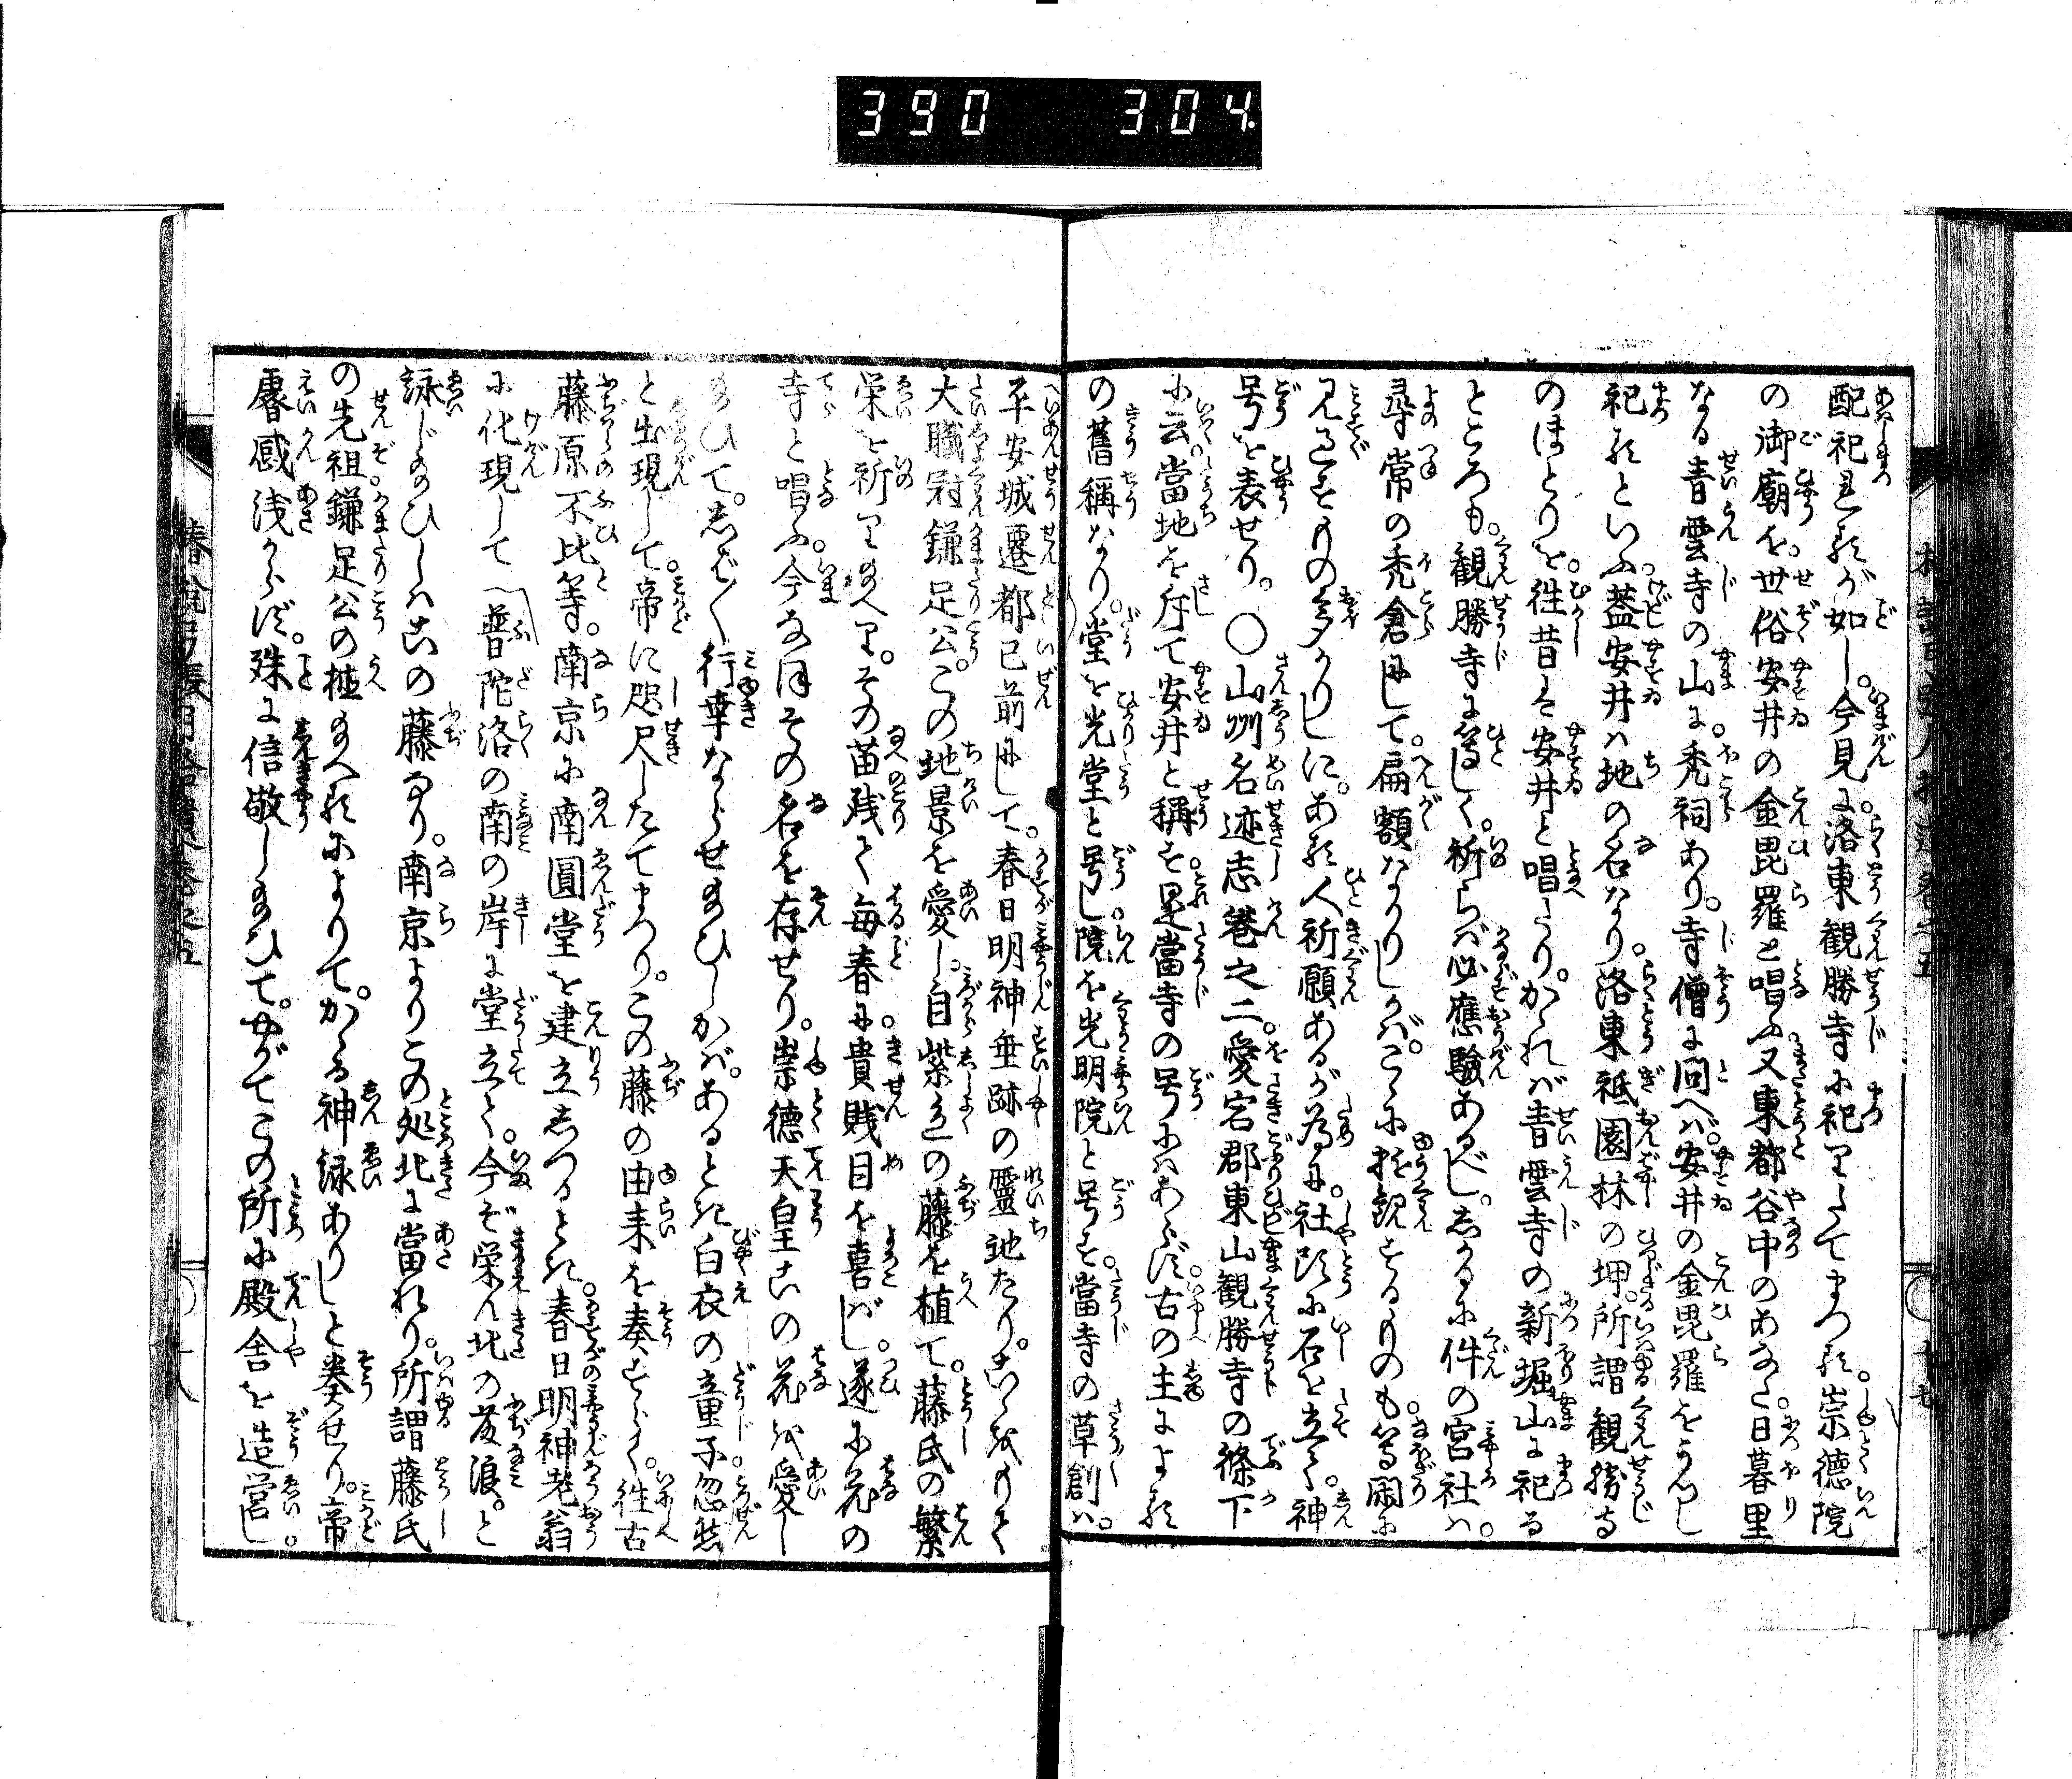 390 304.
配祀奉るが如し。今見に洛東観勝寺に祀りたてまつる。崇徳院
の御廟を。世俗安井の金毘羅と唱ふ。又東都谷中のあなた。日暮里
なる青雲寺の山に。禿祠あり。寺僧に問へば。安井の金毘羅をうつし
祀るといふ。蓋安井は地の名なり。洛東祇園林の坤。所謂観勝寺
のほとりを。往昔は安井と唱たり。かゝれば青雲寺の新堀山に祀る
ところも。観勝寺に等しく。祈らば必應驗あるべし。しかるに件の宮社は。
尋常の禿倉にして。扁額なかりしかば。こゝに遊観するものも。等閑に
見過すもの多かりしに。ある人祈願あるが為に。社頭に石を立て。神
号を表せり。○山州名迹志巻之二。愛宕郡東山観勝寺の條下
に云。當地を斥て安井と稱す。是當寺の号にはあらず。古の主による
の舊稱なり。堂を光堂と号し。院を光明院と号す。當寺の草創は。
平安城遷都已前にして。春日明神垂跡の靈地たり。こゝをもて
大職冠鎌足公。この地景を愛し。自紫色の藤を植て。藤氏の繁
栄を祈り給へり。その苗残て毎春に。貴賤目を喜ばし。遂に花の
寺と唱ふ。今なほその名を存せり。崇徳天皇此の花を愛し
給ひて。しば〳〵行幸ならせ給ひしかば。あるとき白衣の童子。忽然
と出現して。帝に咫尺したてまつり。この藤の由来を奏すらく。往古
藤原不比等。南京に南圓堂を建立しつるとき。春日明神老翁
に化現して 普陀洛の南の岸に堂立て。今ぞ栄ん北の藤浪。と
詠じ給ひしはこの藤なり。南京よりこの処北に當れり。所謂藤氏
の先祖鎌足公の植給へるによりて。かゝる神詠ありしと奏せり。帝
叡感浅からず。殊に信敬し給ひて。やがてこの所に殿舎を造営し。